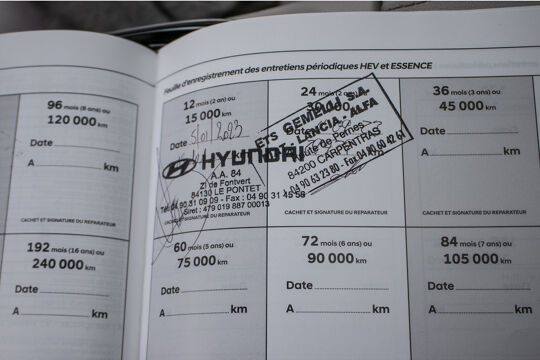 Feuille d'enregistrement des entretiens périodiques HEV et ESSENCE
96 mois (8 ans) ou
120 000 km
Date
A km
CACHET ET SIGNATURE DU REPARATEUR
192 mois (16 ans) ou
240 000 km
Date
A km
12 mois (1 an) ou
15 000 km
Date 5/01/2023
HYUNDAI
A.A. 84
ZI de Fontvert
84130 LE PONTET
Tél. 04 90 31 09 09 - Fax : 04 90 31 45 58
Siret : 479 019 887 00013
CACHET ET SIGNATURE DU REPARATEUR
24 mois (2 ans) ou
30 000
ETS GEMELLI S.A.
LANCIA - ALFA
Route de Pernes
84200 CARPENTRAS
04 90 63 23 80 - Fax 04 90 60 42 61
CACHET ET SIGNATURE DU REPARATEUR
36 mois (3 ans) ou
45 000 km
km
CACHET ET SIGNATURE DU REPARATEUR
60 mois (5 ans) ou
75 000 km
Date
A km
72 mois (6 ans) ou
90 000 km
Date
A km
84 mois (7 ans) ou
105 000 km
Date
A km